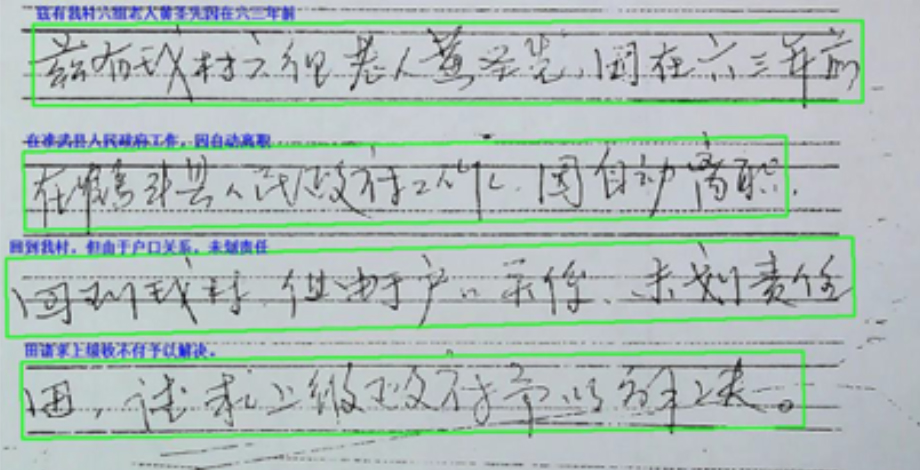 兹有我村六组老人黄圣先因在六三年前
兹有我村六组老人黄圣先,因在六三年前
在准武县人民政府工作,因自动离职
在县人民政府工作、因自动离职.
回到我村,但由于户口关系,未划责任
回到我村.但由于户口关系、未划责任
田请求上级不付予以解决。
田,请求上级政府予以解决。